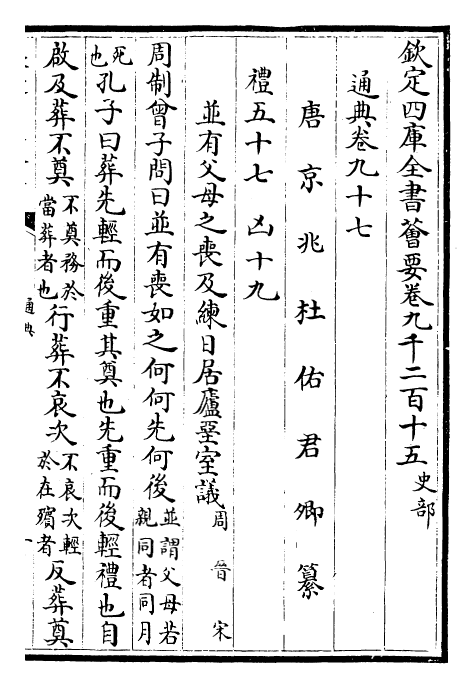 欽定四庫全書薈要卷九千二百十五 史部
通典卷九十七
唐京兆杜佑君卿纂
禮五十七 凶十九
並有父母之喪及練日居廬堊室議 周 晉 宋
周制曾子問曰並有喪如之何何先何後 並謂父母若親同者同月
死也 孔子曰葬先輕而後重其奠也先重而後輕禮也自
啟及葬不奠 不奠務於當葬者也 行葬不哀次 不哀次輕於在殯者 反葬奠
通典
一